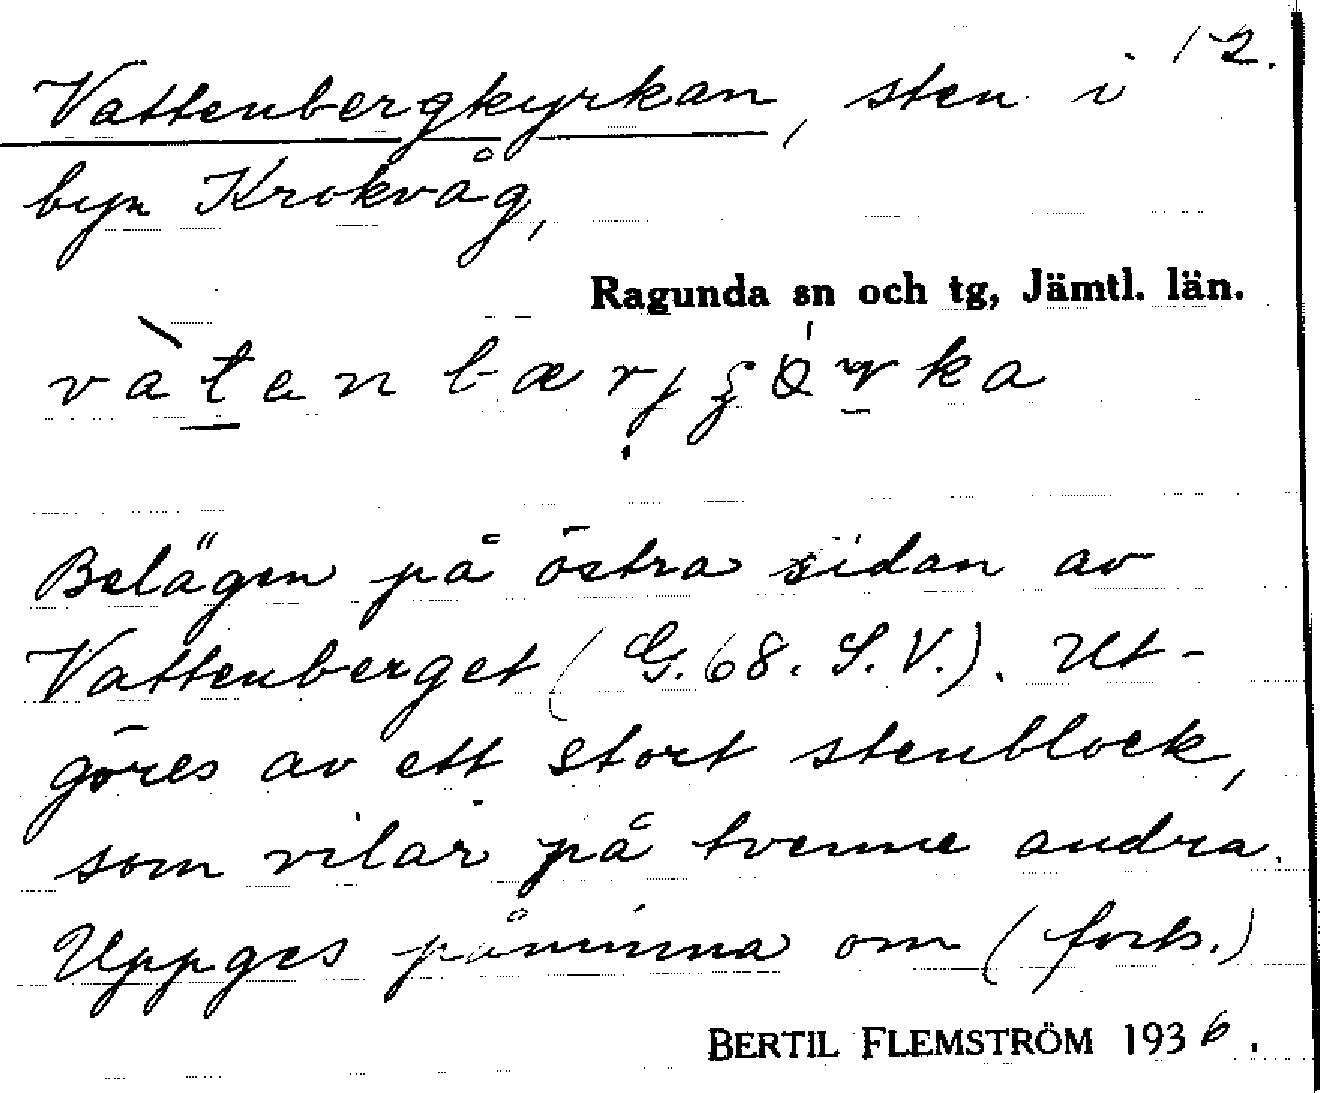 12.
Vattenbergkyrkan, sten i
byn Krokvåg,
Ragunda sn och tg, Jämtl. län.
Belägen på östra sidan av
Vattenberget (G. 68. S. V.). Ut-
göres av ett stort stenblock,
som vilar på tvenne andra.
Uppges påminna om (forts.)
BERTIL FLEMSTRÖM 1936.